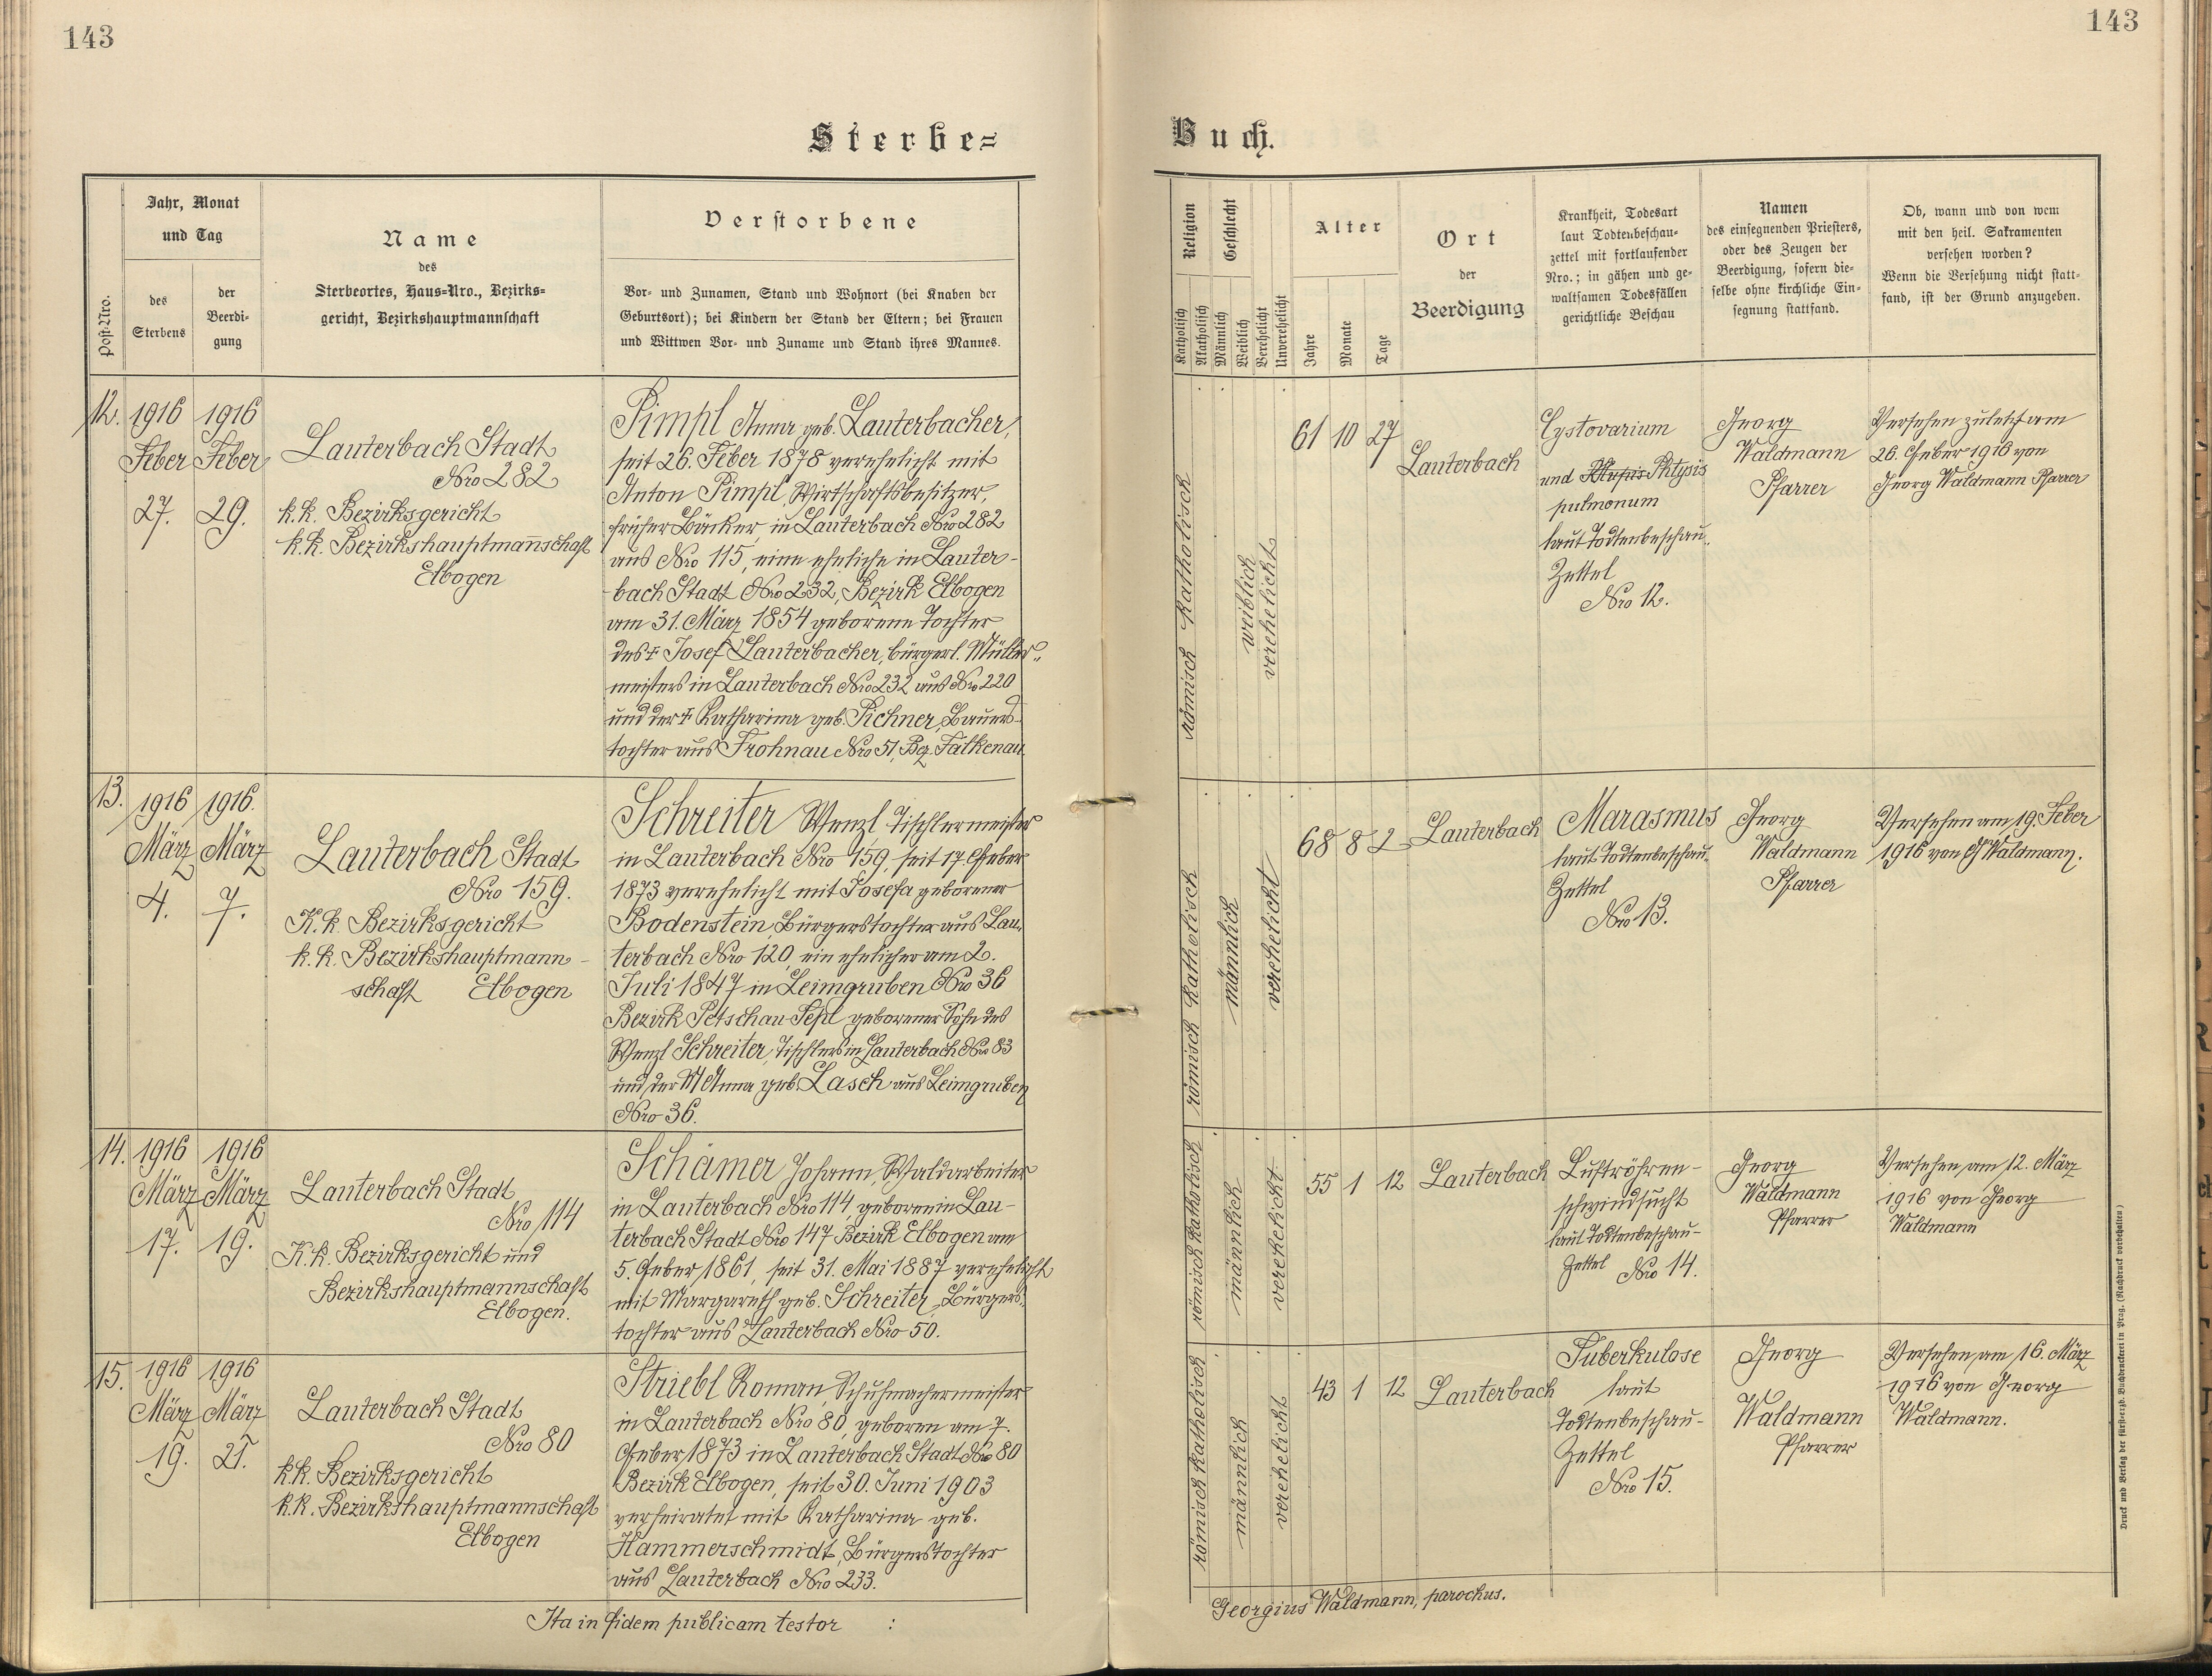 143
Sterbe=
Jahr, Monat
und Tag
Post-Nro.
des
Sterbens
der
Beerdi-
gung
Name
des
Sterbeortes, Haus=Nro., Bezirks=
gericht, Bezirkshauptmannschaft
Verstorbene
Vor- und Zunamen, Stand und Wohnort (bei Knaben der
Geburtsort); bei Kindern der Stand der Eltern; bei Frauen
und Wittwen Vor- und Zuname und Stand ihres Mannes.
12.
1916
Feber
27.
1916
Feber
29.
Lauterbach Stadt
Nro 282
k.k. Bezirksgericht
k.k. Bezirkshauptman̄schaft
Elbogen
Pimpl Anna geb. Lauterbacher,
seit 26. Feber 1878 verehelicht mit
Anton Pimpl, Wirtschaftsbesitzer,
früher Bäcker, in Lauterbach Nro 282
aus Nro 115, eine eheliche in Lauter-
bach Stadt Nro 232, Bezirk Elbogen
am 31. März 1854 geborene Tochter
des † Josef Lauterbacher, bürgerl. Müller-
meisters in Lauterbach Nro 232 aus Nro 220
und der † Katharina geb. Pichner, Bauers-
tochter aus Frohnau Nro 51, Bez. Falkenau
13.
1916
März
4.
1916.
März
7.
Lauterbach Stadt
Nro 159.
K.k. Bezirksgericht
k.k. Bezirkshauptmann-
schaft Elbogen
Schreiter Wenzl Tischlermeister
in Lauterbach Nro 159, seit 17. Feber
1873 verehelicht mit Josefa geborener
Bodenstein, Bürgerstochter aus Lau-
terbach Nro 120, ein ehelicher am 2.
Juli 1847 in Leimgruben Nro 36
Bezirk Petschau-Tepl geborener Sohn des
Wenzl Schreiter, Tischlers in Lauterbach Nro 83
und der Anna geb. Lasch aus Leimgruben
Nro 36.
14.
1916
März
17.
1916
März
19.
Lauterbach Stadt
Nro 114
K.k. Bezirksgericht und
Bezirkshauptmannschaft
Elbogen.
Schamer Johann, Waldarbeiter
in Lauterbach Nro 114, geboren in Lau-
terbach Stadt Nro 147 Bezirk Elbogen am
5. Feber 1861, seit 31. Mai 1887 verehelicht
mit Margareth geb. Schreiter, Bürgers-
tochter aus Lauterbach Nro 50.
15.
1916
März
19.
1916
März
21.
Lauterbach Stadt
Nro 80
k.k. Bezirksgericht
k.k. Bezirkshauptmannschaft
Elbogen
Striebl Roman, Schuhmachermeister
in Lauterbach Nro 80, geboren am 7.
Feber 1873 in Lauterbach Stadt Nro 80
Bezirk Elbogen, seit 30. Juni 1903
verheiratet mit Katharina geb.
Hammerschmidt, Bürgerstochter
aus Lauterbach Nro 233.
Ita in fidem publicam testor :
143
Buch.
Religion
Katholisch
Akatholisch
Geschlecht
Männlich
Weiblich
Verehelicht
Unverehelicht
Alter
Jahre
Monate
Tage
Ort
der
Beerdigung
Krankheit, Todesart
laut Todtenbeschau-
zettel mit fortlaufender
Nro.; in gähen und ge-
waltsamen Todesfällen
gerichtliche Beschau
Namen
des einsegnenden Priesters,
oder des Zeugen der
Beerdigung, sofern die-
selbe ohne kirchliche Ein-
segnung stattfand.
Ob, wann und von wem
mit den heil. Sakramenten
versehen worden?
Wenn die Versehung nicht statt-
fand, ist der Grund anzugeben.
römisch katholisch
weiblich
verehelicht
61 10 27
Lauterbach
Cystovarium
und Phtysis
pulmonum
laut Todtenbeschau-
Zettel
Nro 12.
Georg
Waldmann
Pfarrer
Versehen zuletzt am
26. Feber 1916 von
Georg Waldmann Pfarrer
römisch katholisch
männlich
verehelicht
68 8 2
Lauterbach
Marasmus
laut Todtenbeschau-
Zettel
Nro 13.
Georg
Waldmann
Pfarrer
Versehen am 19. Feber
1916 von G Waldmann.
römisch katholisch
männlich
verehelicht
55 1 12
Lauterbach
Luftröhren-
schwindsucht
laut Todtenbeschau-
Zettel Nro 14.
Georg
Waldmann
Pfarrer
Versehen am 12. März
1916 von Georg
Waldmann
römisch katholisch
männlich
verehelicht
43 1 12
Lauterbach
Tuberkulose
laut
Todtenbeschau-
Zettel
Nro 15.
Georg
Waldmann
Pfarrer
Versehen am 16. März
1916 von Georg
Waldmann.
Georgius Waldmann, parochus.
Druck und Verlag der fürsterzb. Buchdruckerei in Prag. (Nachdruck vorbehalten.)